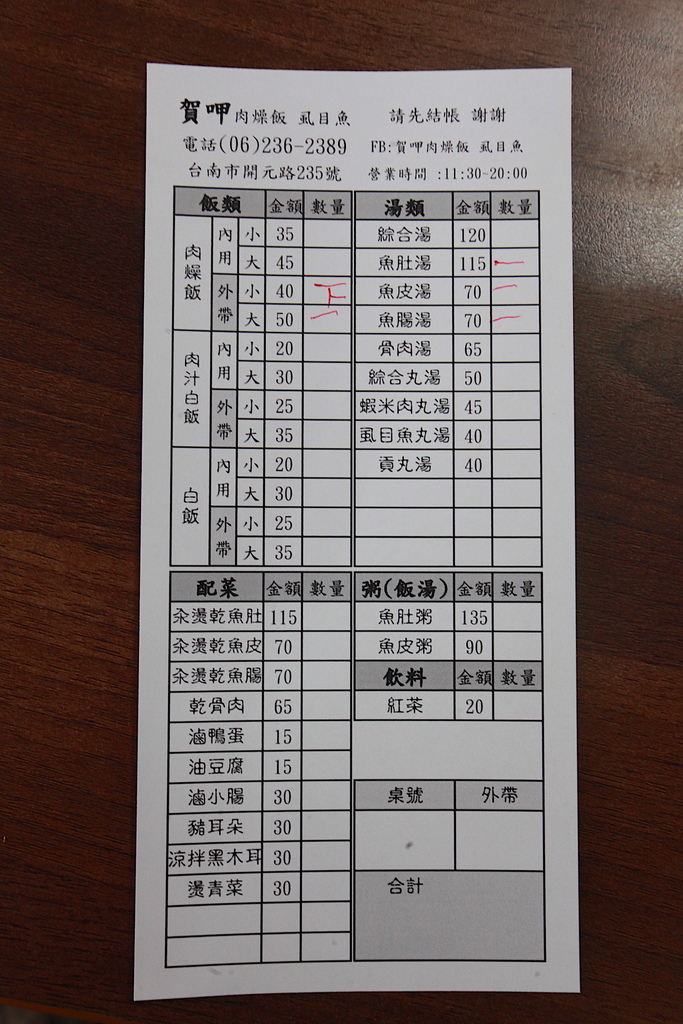 賀呷肉燥飯 虱目魚
請先結帳 謝謝
電話(06)236-2389
FB:賀呷肉燥飯 虱目魚
台南市開元路235號
營業時間:11:30~20:00
飯類 金額 數量
肉燥飯
內用 小 35
大 45
外帶 小 40 下
大 50 一
肉汁白飯
內用 小 20
大 30
外帶 小 25
大 35
白飯
內用 小 20
大 30
外帶 小 25
大 35
湯類 金額 數量
綜合湯 120
魚肚湯 115 一
魚皮湯 70 一
魚腸湯 70 一
骨肉湯 65
綜合丸湯 50
蝦米肉丸湯 45
虱目魚丸湯 40
貢丸湯 40
配菜 金額 數量
汆燙乾魚肚 115
汆燙乾魚皮 70
汆燙乾魚腸 70
乾骨肉 65
滷鴨蛋 15
油豆腐 15
滷小腸 30
豬耳朵 30
涼拌黑木耳 30
燙青菜 30
粥(飯湯) 金額 數量
魚肚粥 135
魚皮粥 90
飲料 金額 數量
紅茶 20
桌號 外帶
合計